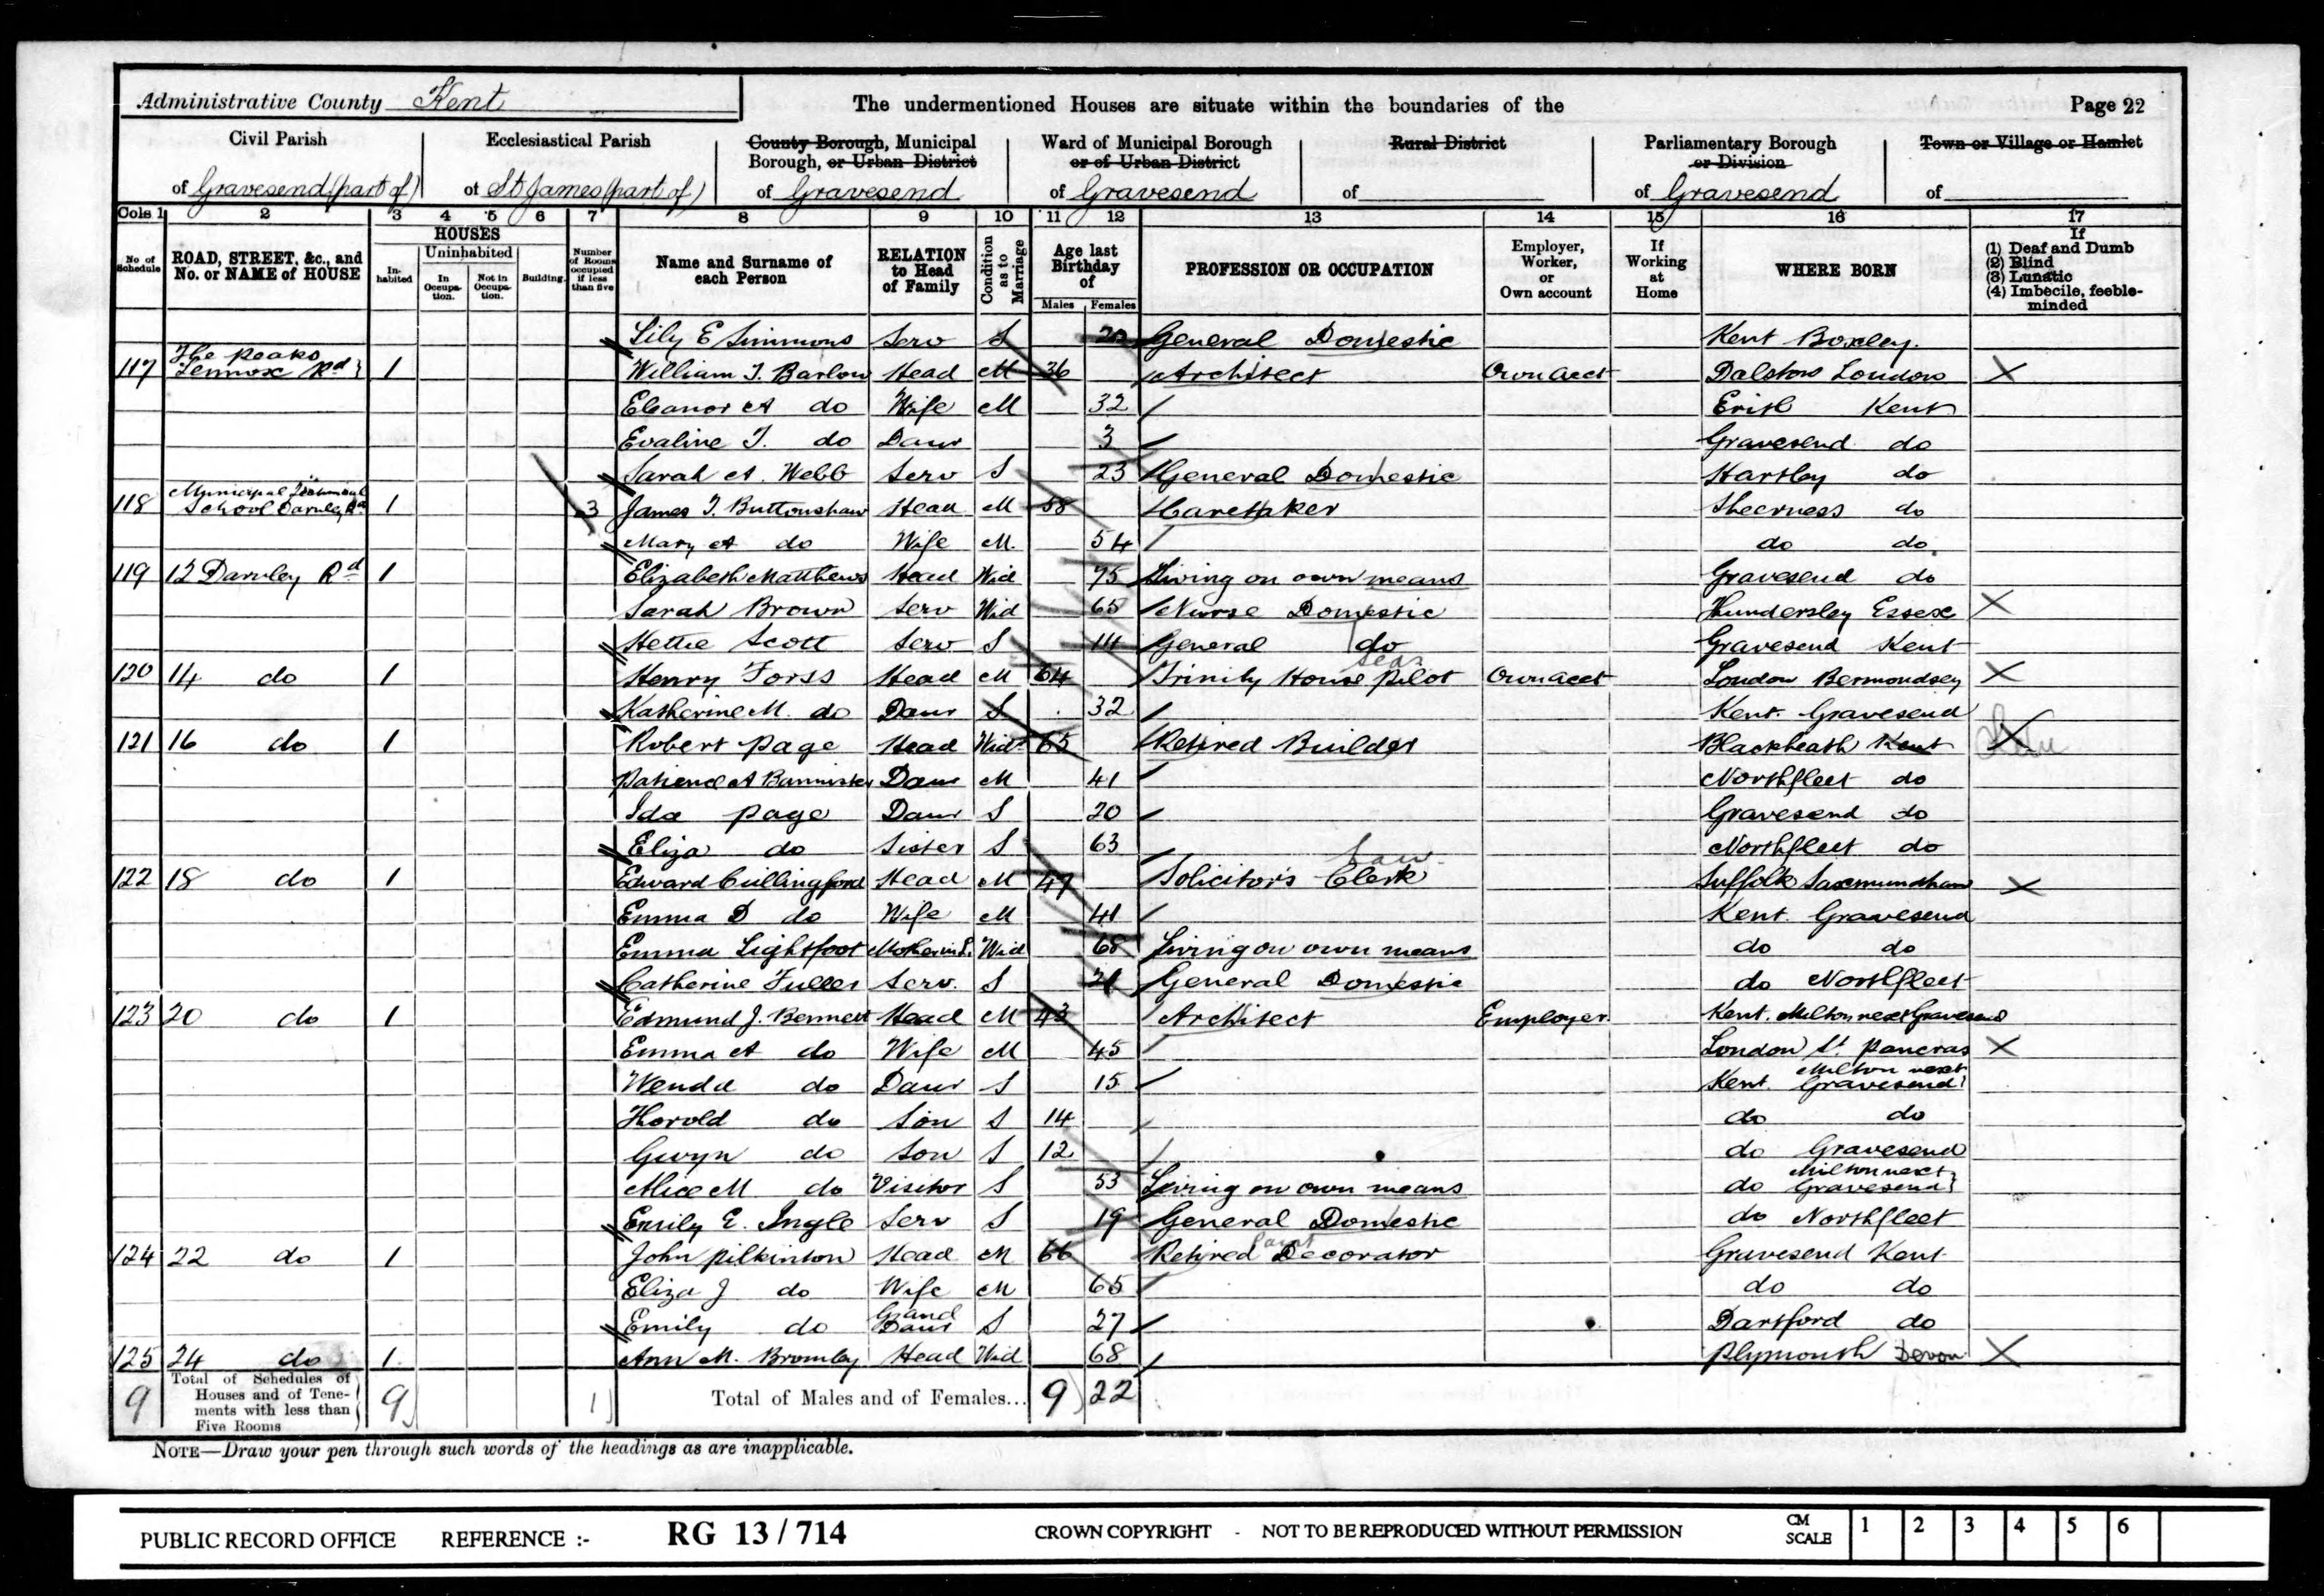 Administrative County Kent The undermentioned Houses are situate within the boundaries of the Page 22
Civil Parish Ecclesiastical Parish County Borough, Municipal Borough, or Urban District Ward of Municipal Borough or of Urban District Rural District Parliamentary Borough or Division Town or Village or Hamlet
of Gravesend (part of) of St James (part of) of Gravesend of Gravesend of of Gravesend of
Cols 1 2 3 4 5 6 7 8 9 10 11 12 13 14 15 16 17
No of Schedule ROAD, STREET, &c., and No. or NAME of HOUSE HOUSES In-habited Uninhabited In Occupa-tion. Not in Occupa-tion. Building. Number of Rooms occupied if less than five Name and Surname of each Person RELATION to Head of Family Condition as to Marriage Age last Birthday of Males Females PROFESSION OR OCCUPATION Employer, Worker, or Own account If Working at Home WHERE BORN If (1) Deaf and Dumb (2) Blind (3) Lunatic (4) Imbecile, feeble-minded
Lily E Simmons Serv S General Domestic Kent Boxley
117 The Peaks Lennox Rd 1 William T. Barlow Head M 36 Architect Own acct Dalston London X
Eleanor A do Wife M 32 Erith Kent
Evaline T. do Daur 3 Gravesend do
Sarah A. Webb Serv S 23 General Domestic Hartley do
118 Municipal Technical School Darnley Rd 1 3 James T. Buttonshaw Head M 58 Caretaker Sheerness do
Mary A do Wife M. 54 do do
119 12 Darnley Rd 1 Elizabeth Matthews Head Wid 75 Living on own means Gravesend do
Sarah Brown Serv Wid 65 Nurse Domestic Hundersley Essex X
Hettie Scott Serv S 14 General do Gravesend Kent
120 14 do 1 Henry Forss Head M 64 Trinity House Pilot Own acct London Bermondsey X
Katherine M. do Daur S 32 Kent Gravesend
121 16 do 1 Robert Page Head Widr 65 Retired Builder Blackheath Kent X
Patience A Bannister Daur M 41 Northfleet do
Ida Page Daur S 20 Gravesend do
Eliza do Sister S 63 Northfleet do
122 18 do 1 Edward Cullingford Head M 47 Solicitor's Law Clerk Suffolk Saxmundham X
Emma D do Wife M 41 Kent Gravesend
Emma Lightfoot Mother in L. Wid 68 Living on own means do do
Catherine Fuller Serv. S 21 General Domestic do Northfleet
123 20 do 1 Edmund J. Bennett Head M 43 Architect Employer Kent. Milton next Gravesend
Emma A do Wife M 45 London St Pancras X
Wenda do Daur S 15 Kent Milton next Gravesend
Harold do Son S 14 do do
Gwyn do Son S 12 do Gravesend
Alice M do Visitor S 53 Living on own means do Milton next Gravesend
Emily E. Ingle Serv S 19 General Domestic do Northfleet
124 22 do 1 John Pilkinton Head M 66 Retired Decorator Gravesend Kent
Eliza J do Wife M 65 do do
Emily do Grand Daur S 27 Dartford do
125 24 do 1 Ann M. Bromley Head Wid 68 Plymouth Devon X
9 Total of Schedules of Houses and of Tene-ments with less than Five Rooms 9 1 Total of Males and of Females... 9 22
NOTE—Draw your pen through such words of the headings as are inapplicable.
PUBLIC RECORD OFFICE REFERENCE :- RG 13/714 CROWN COPYRIGHT - NOT TO BE REPRODUCED WITHOUT PERMISSION CM SCALE 1 2 3 4 5 6